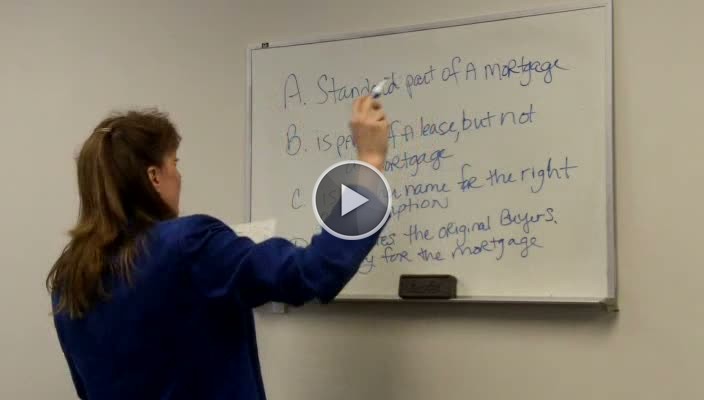 A. Standard part of A mortgage
B. is part of A lease, but not
mortgage
C. name for the right
D. the original Buyers.
for the mortgage